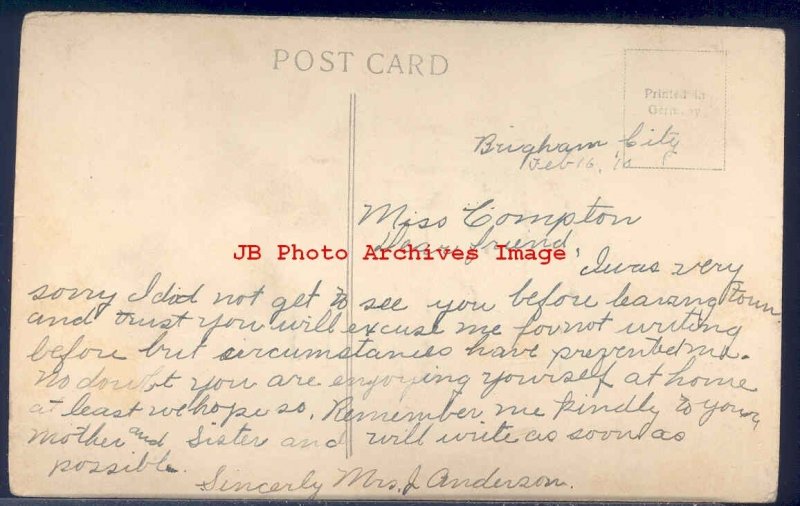 POST CARD
Printed in
Germany
Brigham City
Feb 16, '10
Miss Compton
Dear friend,
JB Photo Archives Image
I was very
sorry I did not get to see you before leaving town
and trust you will excuse me for not writing
before but circumstances have prevented me.
No doubt you are enjoying yourself at home
at least we hope so. Remember me kindly to your
mother and Sister and will write as soon as
possible.
Sincerly Mrs. J Anderson.